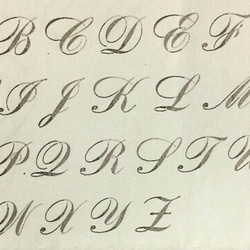 B C D E F
I J K L M
P Q R S T U
W X Y Z